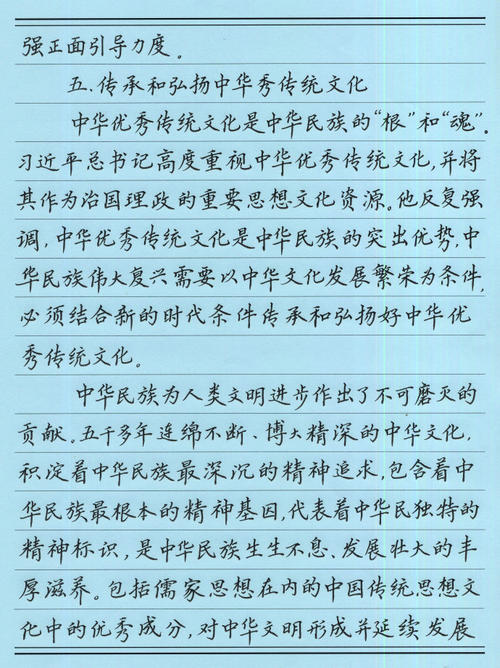 强正面引导力度。
五.传承和弘扬中华秀传统文化
中华优秀传统文化是中华民族的“根”和“魂”。
习近平总书记高度重视中华优秀传统文化,并将
其作为治国理政的重要思想文化资源。他反复强
调,中华优秀传统文化是中华民族的突出优势,中
华民族伟大复兴需要以中华文化发展繁荣为条件,
必须结合新的时代条件传承和弘扬好中华优
秀传统文化。
中华民族为人类文明进步作出了不可磨灭的
贡献。五千多年连绵不断、博大精深的中华文化,
积淀着中华民族最深沉的精神追求,包含着中
华民族最根本的精神基因,代表着中华民独特的
精神标识,是中华民族生生不息、发展壮大的丰
厚滋养。包括儒家思想在内的中国传统思想文
化中的优秀成分,对中华文明形成并延续发展